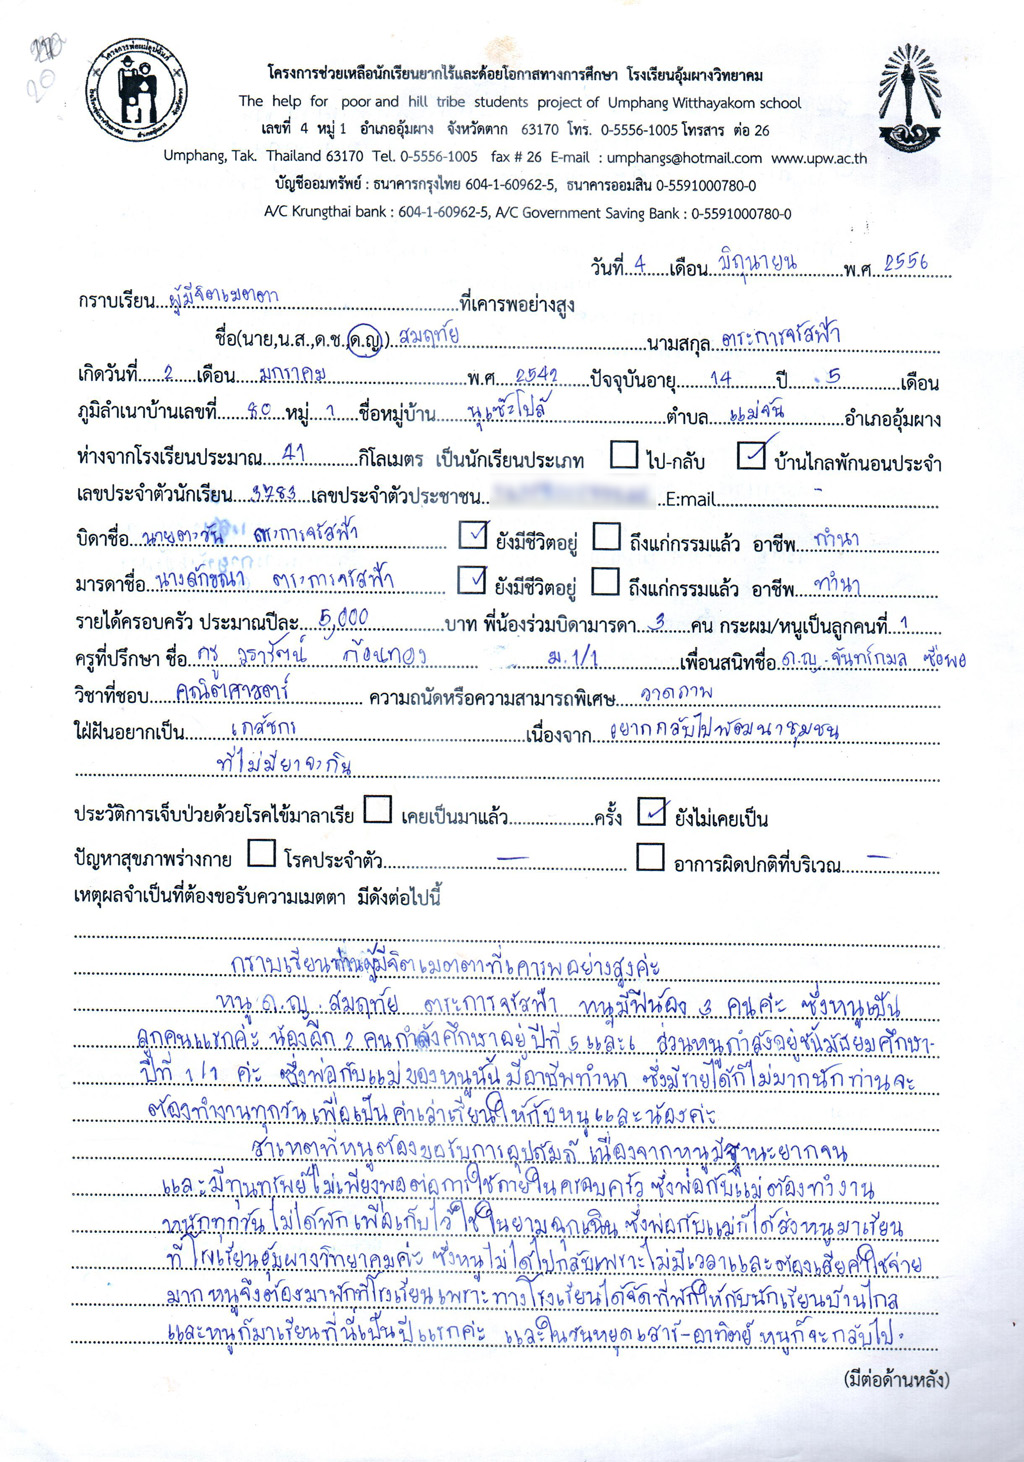 โครงการช่วยเหลือนักเรียนยากไร้และด้อยโอกาสทางการศึกษา โรงเรียนอุ้มผางวิทยาคม
The help for poor and hill tribe students project of Umphang Witthayakom school
เลขที่ 4 หมู่ 1 อำเภออุ้มผาง จังหวัดตาก 63170 โทร. 0-5556-1005 โทรสาร ต่อ 26
Umphang, Tak. Thailand 63170 Tel. 0-5556-1005 fax # 26 E-mail : umphangs@hotmail.com www.upw.ac.th
บัญชีออมทรัพย์ : ธนาคารกรุงไทย 604-1-60962-5, ธนาคารออมสิน 0-5591000780-0
A/C Krungthai bank : 604-1-60962-5, A/C Government Saving Bank : 0-5591000780-0
วันที่ 4 เดือน มิถุนายน พ.ศ. 2556
กราบเรียน ผู้มีจิตเมตตา ที่เคารพอย่างสูง
ชื่อ(นาย,น.ส.,ด.ช.,ด.ญ.) สมฤทัย นามสกุล ตระการจรัสฟ้า
เกิดวันที่ 2 เดือน มกราคม พ.ศ. 2542 ปัจจุบันอายุ 14 ปี 5 เดือน
ภูมิลำเนาบ้านเลขที่ 80 หมู่ 1 ชื่อหมู่บ้าน นุเซะโปล้ ตำบล แม่จัน อำเภออุ้มผาง
ห่างจากโรงเรียนประมาณ 41 กิโลเมตร เป็นนักเรียนประเภท ไป-กลับ บ้านไกลพักนอนประจำ
เลขประจำตัวนักเรียน 3783 เลขประจำตัวประชาชน E:mail -
บิดาชื่อ นายตะวัน ตระการจรัสฟ้า ยังมีชีวิตอยู่ ถึงแก่กรรมแล้ว อาชีพ ทำนา
มารดาชื่อ นางลักขณา ตระการจรัสฟ้า ยังมีชีวิตอยู่ ถึงแก่กรรมแล้ว อาชีพ ทำนา
รายได้ครอบครัว ประมาณปีละ 5,000 บาท พี่น้องร่วมบิดามารดา 3 คน กระผม/หนูเป็นลูกคนที่ 1
ครูที่ปรึกษา ชื่อ ครู วรารัตน์ ก้อนทอง ม.1/1 เพื่อนสนิทชื่อ ด.ญ. จันทร์กมล ซือพอ
วิชาที่ชอบ คณิตศาสตร์ ความถนัดหรือความสามารถพิเศษ วาดภาพ
ใฝ่ฝันอยากเป็น เภสัชกร เนื่องจาก อยากกลับไปพัฒนาชุมชน
ที่ไม่มียาจะกิน
ประวัติการเจ็บป่วยด้วยโรคไข้มาลาเรีย เคยเป็นมาแล้ว ครั้ง ยังไม่เคยเป็น
ปัญหาสุขภาพร่างกาย โรคประจำตัว - อาการผิดปกติที่บริเวณ -
เหตุผลจำเป็นที่ต้องขอรับความเมตตา มีดังต่อไปนี้
กราบเรียนท่านผู้มีจิตเมตตาที่เคารพอย่างสูงค่ะ
หนู ด.ญ. สมฤทัย ตระการจรัสฟ้า หนูมีพี่น้อง 3 คนค่ะ ซึ่งหนูเป็น
ลูกคนแรกค่ะ น้องอีก 2 คนกำลังศึกษาอยู่ปีที่ 5 และ ส่วนหนูกำลังอยู่ชั้นมัธยมศึกษา
ปีที่ 1/1 ค่ะ ซึ่งพ่อกับแม่ของหนูนั้น มีอาชีพทำนา ซึ่งมีรายได้ก็ไม่มากนัก ท่านจะ
ต้องทำงานทุกวัน เพื่อเป็นค่าเล่าเรียนให้กับหนูและน้องค่ะ
สาเหตุที่หนูต้องขอรับการอุปถัมภ์ เนื่องจากหนูมีฐานะยากจน
และมีทุนทรัพย์ไม่เพียงพอต่อการใช้ภายในครอบครัว ซึ่งพ่อกับแม่ต้องทำงาน
หนักทุกวัน ไม่ได้พัก เพื่อเก็บไว้ใช้ในยามฉุกเฉิน ซึ่งพ่อกับแม่ก็ได้ส่งหนูมาเรียน
ที่โรงเรียนอุ้มผางวิทยาคมค่ะ ซึ่งหนูไม่ได้ไปกลับเพราะไม่มีเวลาและต้องเสียค่าใช้จ่าย
มาก หนูจึงต้องมาพักที่โรงเรียน เพราะทางโรงเรียนได้จัดที่พักให้กับนักเรียนบ้านไกล
และหนูก็มาเรียนที่นี่เป็นปีแรกค่ะ และในวันหยุดเสาร์-อาทิตย์ หนูก็จะกลับไป
(มีต่อด้านหลัง)